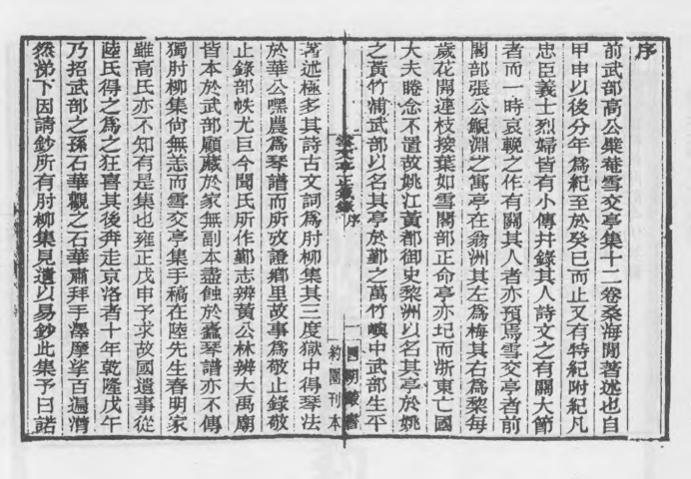 序
前武部高公檗菴雪交亭集十二卷桑海閒著述也自
甲申以後分年爲紀至於癸巳而止又有特紀附紀凡
忠臣義士烈婦皆有小傳幷錄其人詩文之有關大節
者而一時哀輓之作有關其人者亦預焉雪交亭者前
閣部張公鯢淵之寓亭在翁洲其左爲梅其右爲棃每
歲花開連枝接葉如雪閣部正命亭亦圮而浙東亡國
大夫睠念不置故姚江黃都御史黎洲以名其亭於姚
之黃竹浦武部以名其亭於鄞之萬竹嶼中武部生平
雪交亭正氣錄 序 一 四明叢書
約園刊本
著述極多其詩古文詞爲肘柳集其三度獄中得琴法
於華公嘿農爲琴譜而所攷證鄉里故事爲敬止錄敬
止錄部帙尤巨今聞氏所作鄞志辨黃公林辨大禹廟
皆本於武部顧藏於家無副本盡蝕於蠹琴譜亦不傳
獨肘柳集尙無恙而雪交亭集手稿在陸先生春明家
雖高氏亦不知有是集也雍正戊申予求故國遺事從
陸氏得之爲之狂喜其後奔走京洛者十年乾隆戊午
乃招武部之孫石華觀之石華肅拜手澤摩挲百遍潸
然涕下因請鈔所有肘柳集見遺以易鈔此集予曰諾